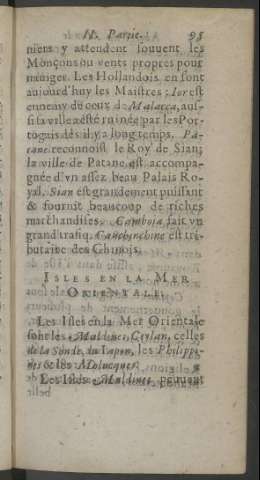 II. Partie. 95
niers y attendent souuent les
Monçons ou vents propres pour
nauiger. Les Hollandois en sont
aujourd'huy les Maistres: Ior est
ennemy du costé de Malacca, aus-
si sa ville a esté ruinée par les Por-
togais dés il y a long temps. Pa-
tane reconnoist le Roy de Sian;
la ville de Patane est accompa-
gnée d'vn assez beau Palais Ro-
yal. Sian est grandement puissant
& fournit beaucoup de riches
marchandises. Camboia fait vn
grand trafiq. Cauchinchine est tri-
butaire des Chinois.
ISLES EN LA MER
ORIENTALE.
Les Isles en la Mer Orientale
sont les Maldiues, Ceylan, celles
de la Sonde, du Iapon, les Philippi-
nes & les Molucques.
Les Isles Maldiues peuuent
belle